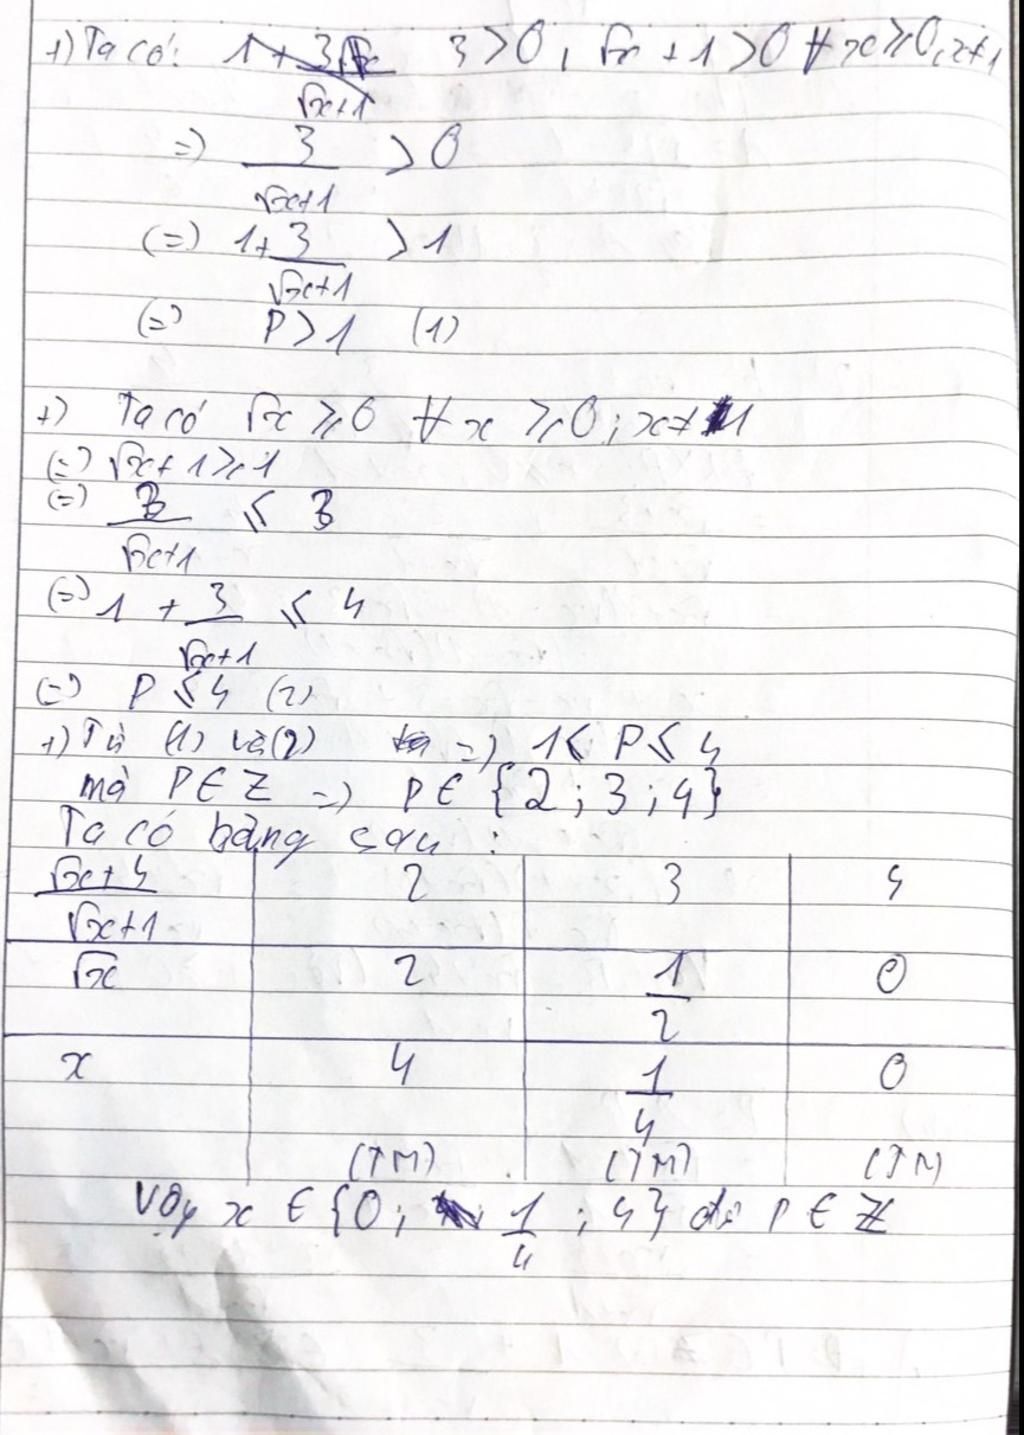 +) Ta có: 3 > 0 ; √x + 1 > 0 ∀ x ≥ 0, x ≠ 1
=> 3/(√x+1) > 0
(=) 1 + 3/(√x+1) > 1
(=) P > 1 (1)
+) Ta có √x ≥ 0 ∀ x ≥ 0 ; x ≠ 1
(=) √x + 1 ≥ 1
(=) 3/(√x+1) ≤ 3
(=) 1 + 3/(√x+1) ≤ 4
(=) P ≤ 4 (2)
+) Từ (1) và (2) => 1 < P ≤ 4
mà P ∈ Z => P ∈ {2 ; 3 ; 4}
Ta có bảng sau :
(√x+4)/(√x+1) 2 3 4
√x 2 1/2 0
x 4 1/4 0
(TM) (TM) (TM)
Vậy x ∈ {0 ; 1/4 ; 4} để P ∈ Z